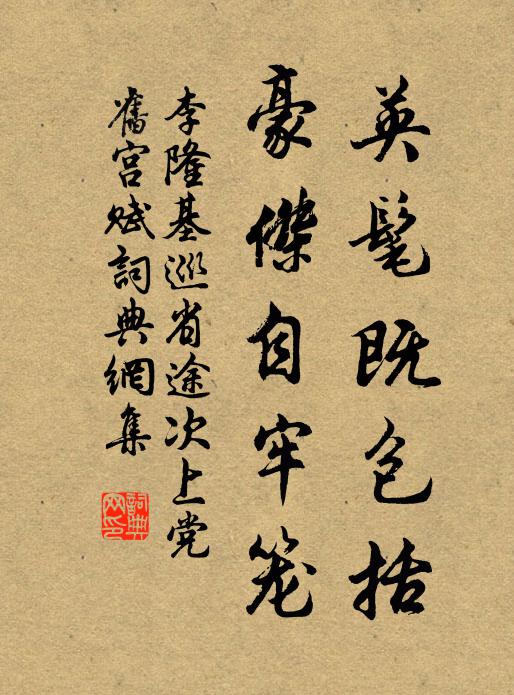 英髦既包括
豪傑自牢笼
李隆基巡省途次上党
舊宫赋詞典網集
詞典
网印